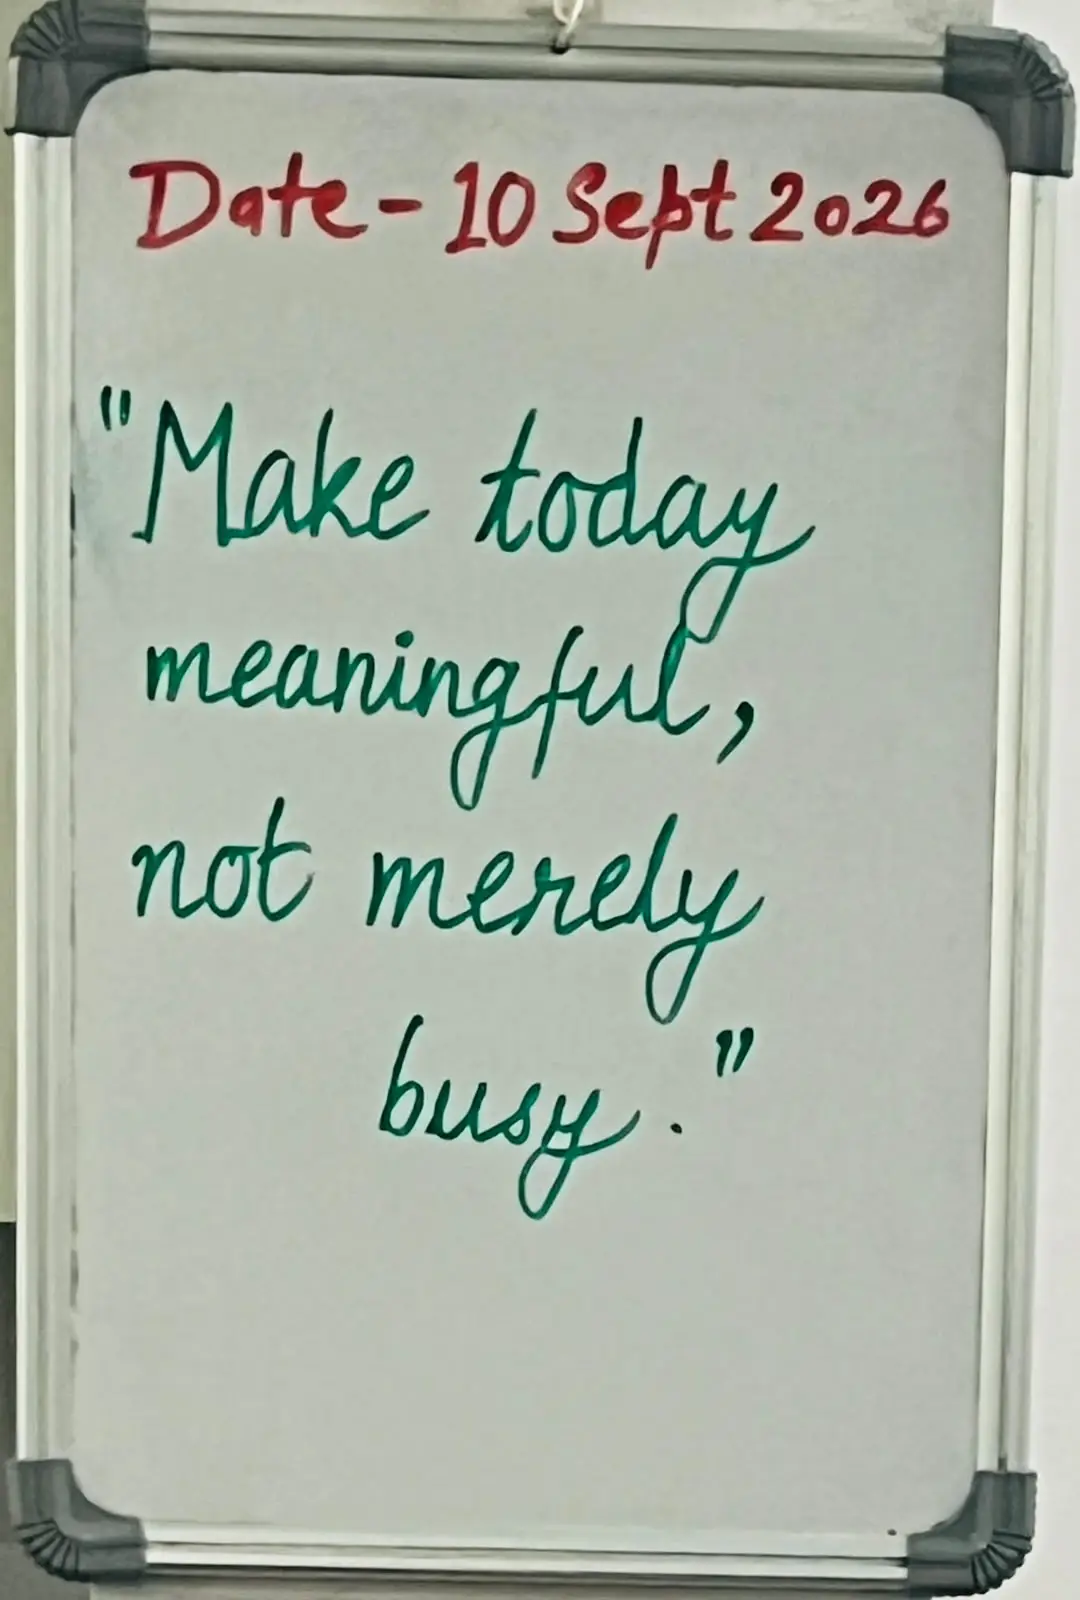 Date - 10 Sept 2026
"Make today
meaningful,
not merely
busy."